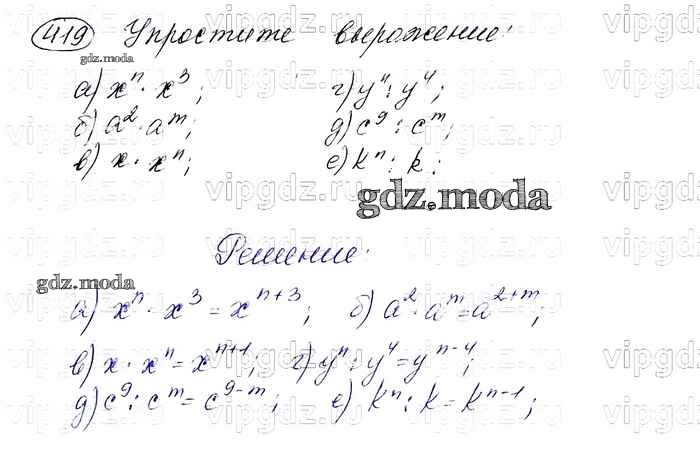 419 Упростите выражение:
gdz.moda
а) xⁿ · x³; г) yⁿ : y⁴;
б) a² · aᵐ; д) c⁹ : cᵐ;
в) x · xⁿ; е) kⁿ : k;
gdz.moda
Решение:
gdz.moda
а) xⁿ · x³ = xⁿ⁺³; б) a² · aᵐ = a²⁺ᵐ;
в) x · xⁿ = xⁿ⁺¹; г) yⁿ : y⁴ = yⁿ⁻⁴;
д) c⁹ : cᵐ = c⁹⁻ᵐ; е) kⁿ : k = kⁿ⁻¹;